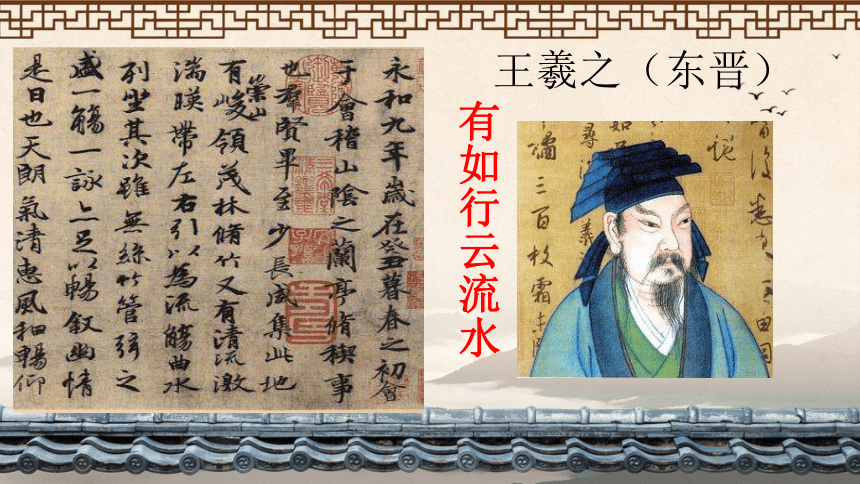 王羲之（东晋）
永和九年歲在癸丑暮春之初會
于會稽山陰之蘭亭脩稧事
也羣賢畢至少長咸集此地
崇山
有峻領茂林脩竹又有清流激
湍暎帶左右引以為流觴曲水
列坐其次雖無絲竹管弦之
盛一觴一詠亦足以暢叙幽情
是日也天朗氣清惠風和暢仰
有如行云流水
橘三百枚霜未